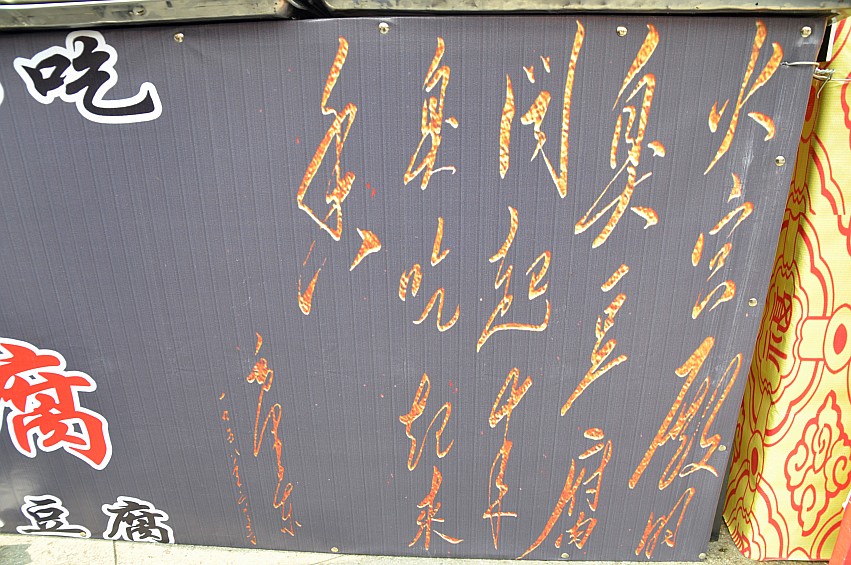 火宫殿的
臭豆腐
闻起来
臭吃起来
香
毛泽东
吃
腐
豆腐